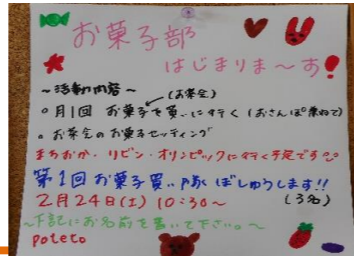 お菓子部
はじまりま〜す!
〜活動内容〜
(お茶会)
○月1回 お菓子を買いに行く(おさんぽ兼ねて)
○お茶会のお菓子セッティング
まちおか・リビン・オリンピックに行く予定です
第1回 お菓子買い隊 ぼしゅうします!!
2月24日(土) 10:30〜 (3名)
〜下記にお名前を書いて下さい。〜
poteto